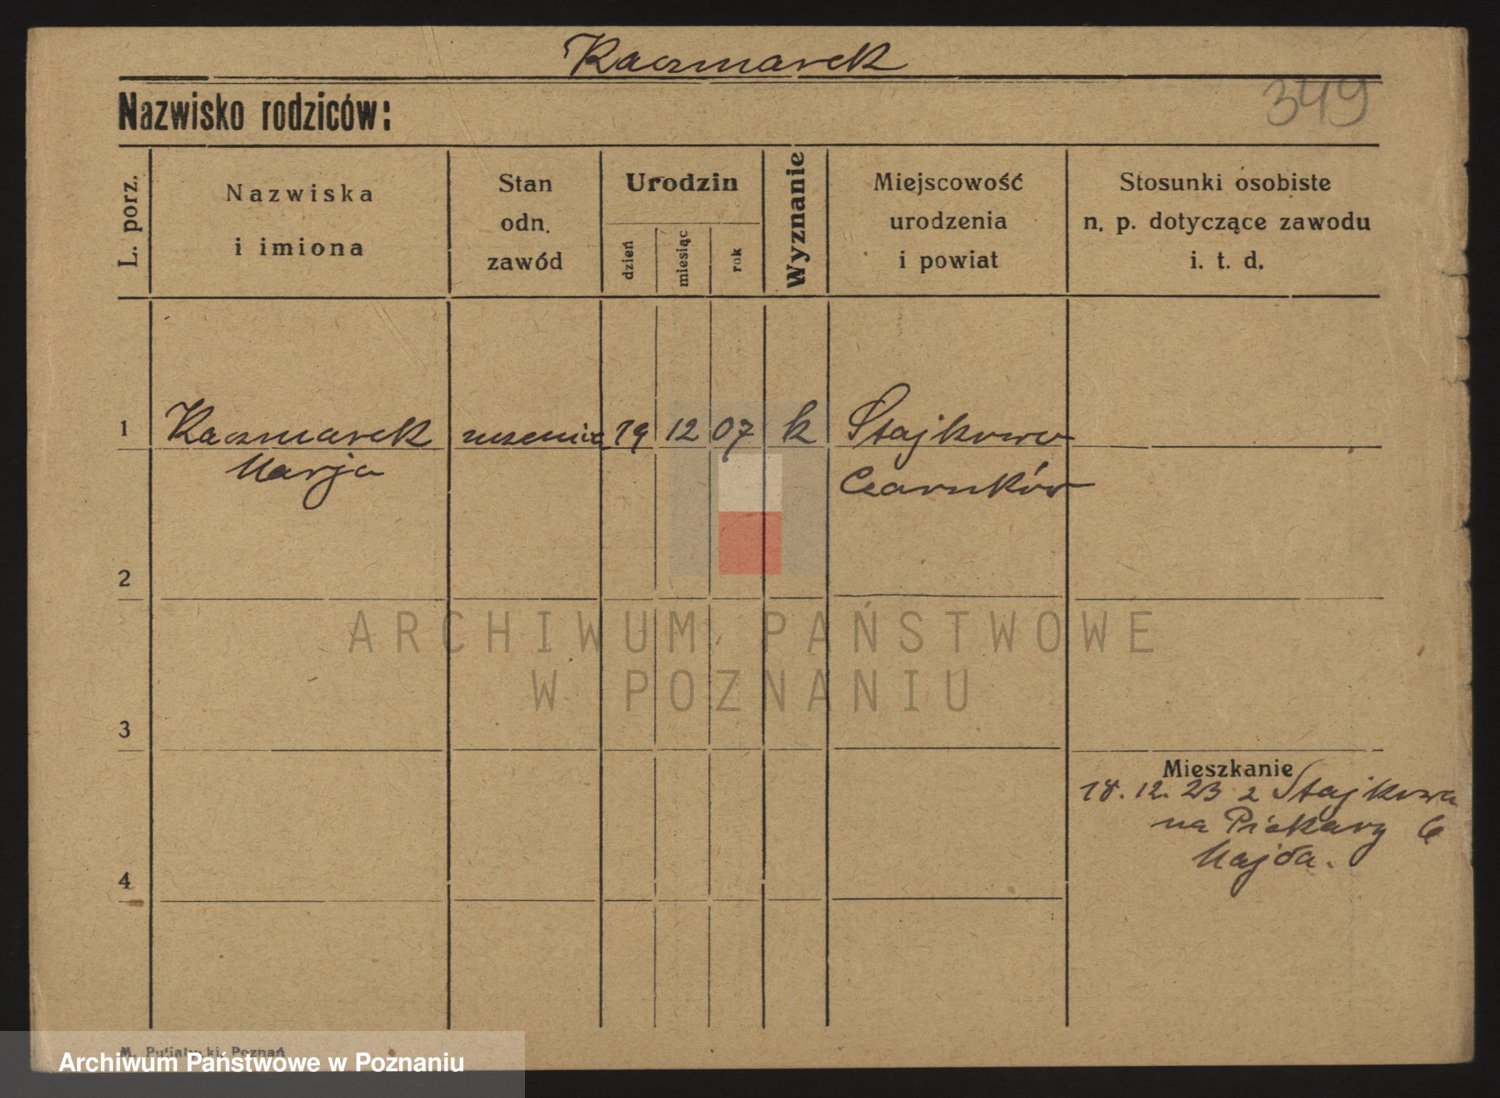 Kaczmarek
Nazwisko rodziców:
349
L. porz.
Nazwiska
i imiona
Stan
odn.
zawód
Urodzin
dzień
miesiąc
rok
Wyznanie
Miejscowość
urodzenia
i powiat
Stosunki osobiste
n. p. dotyczące zawodu
i. t. d.
1 Kaczmarek 19 12 07 k Stajkowo
Marja Czarnków
2
ARCHIWUM PAŃSTWOWE
W POZNANIU
3
Mieszkanie
18. 12. 23 z Stajkowa
na Piekary 6
Majda.
4
M. Putiatycki, Poznań
Archiwum Państwowe w Poznaniu